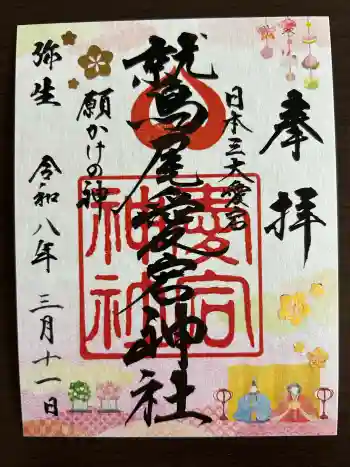 奉拝
日本三大愛宕
鷲尾愛宕神社
願かけの神
弥生
令和八年三月十一日
愛宕
神社